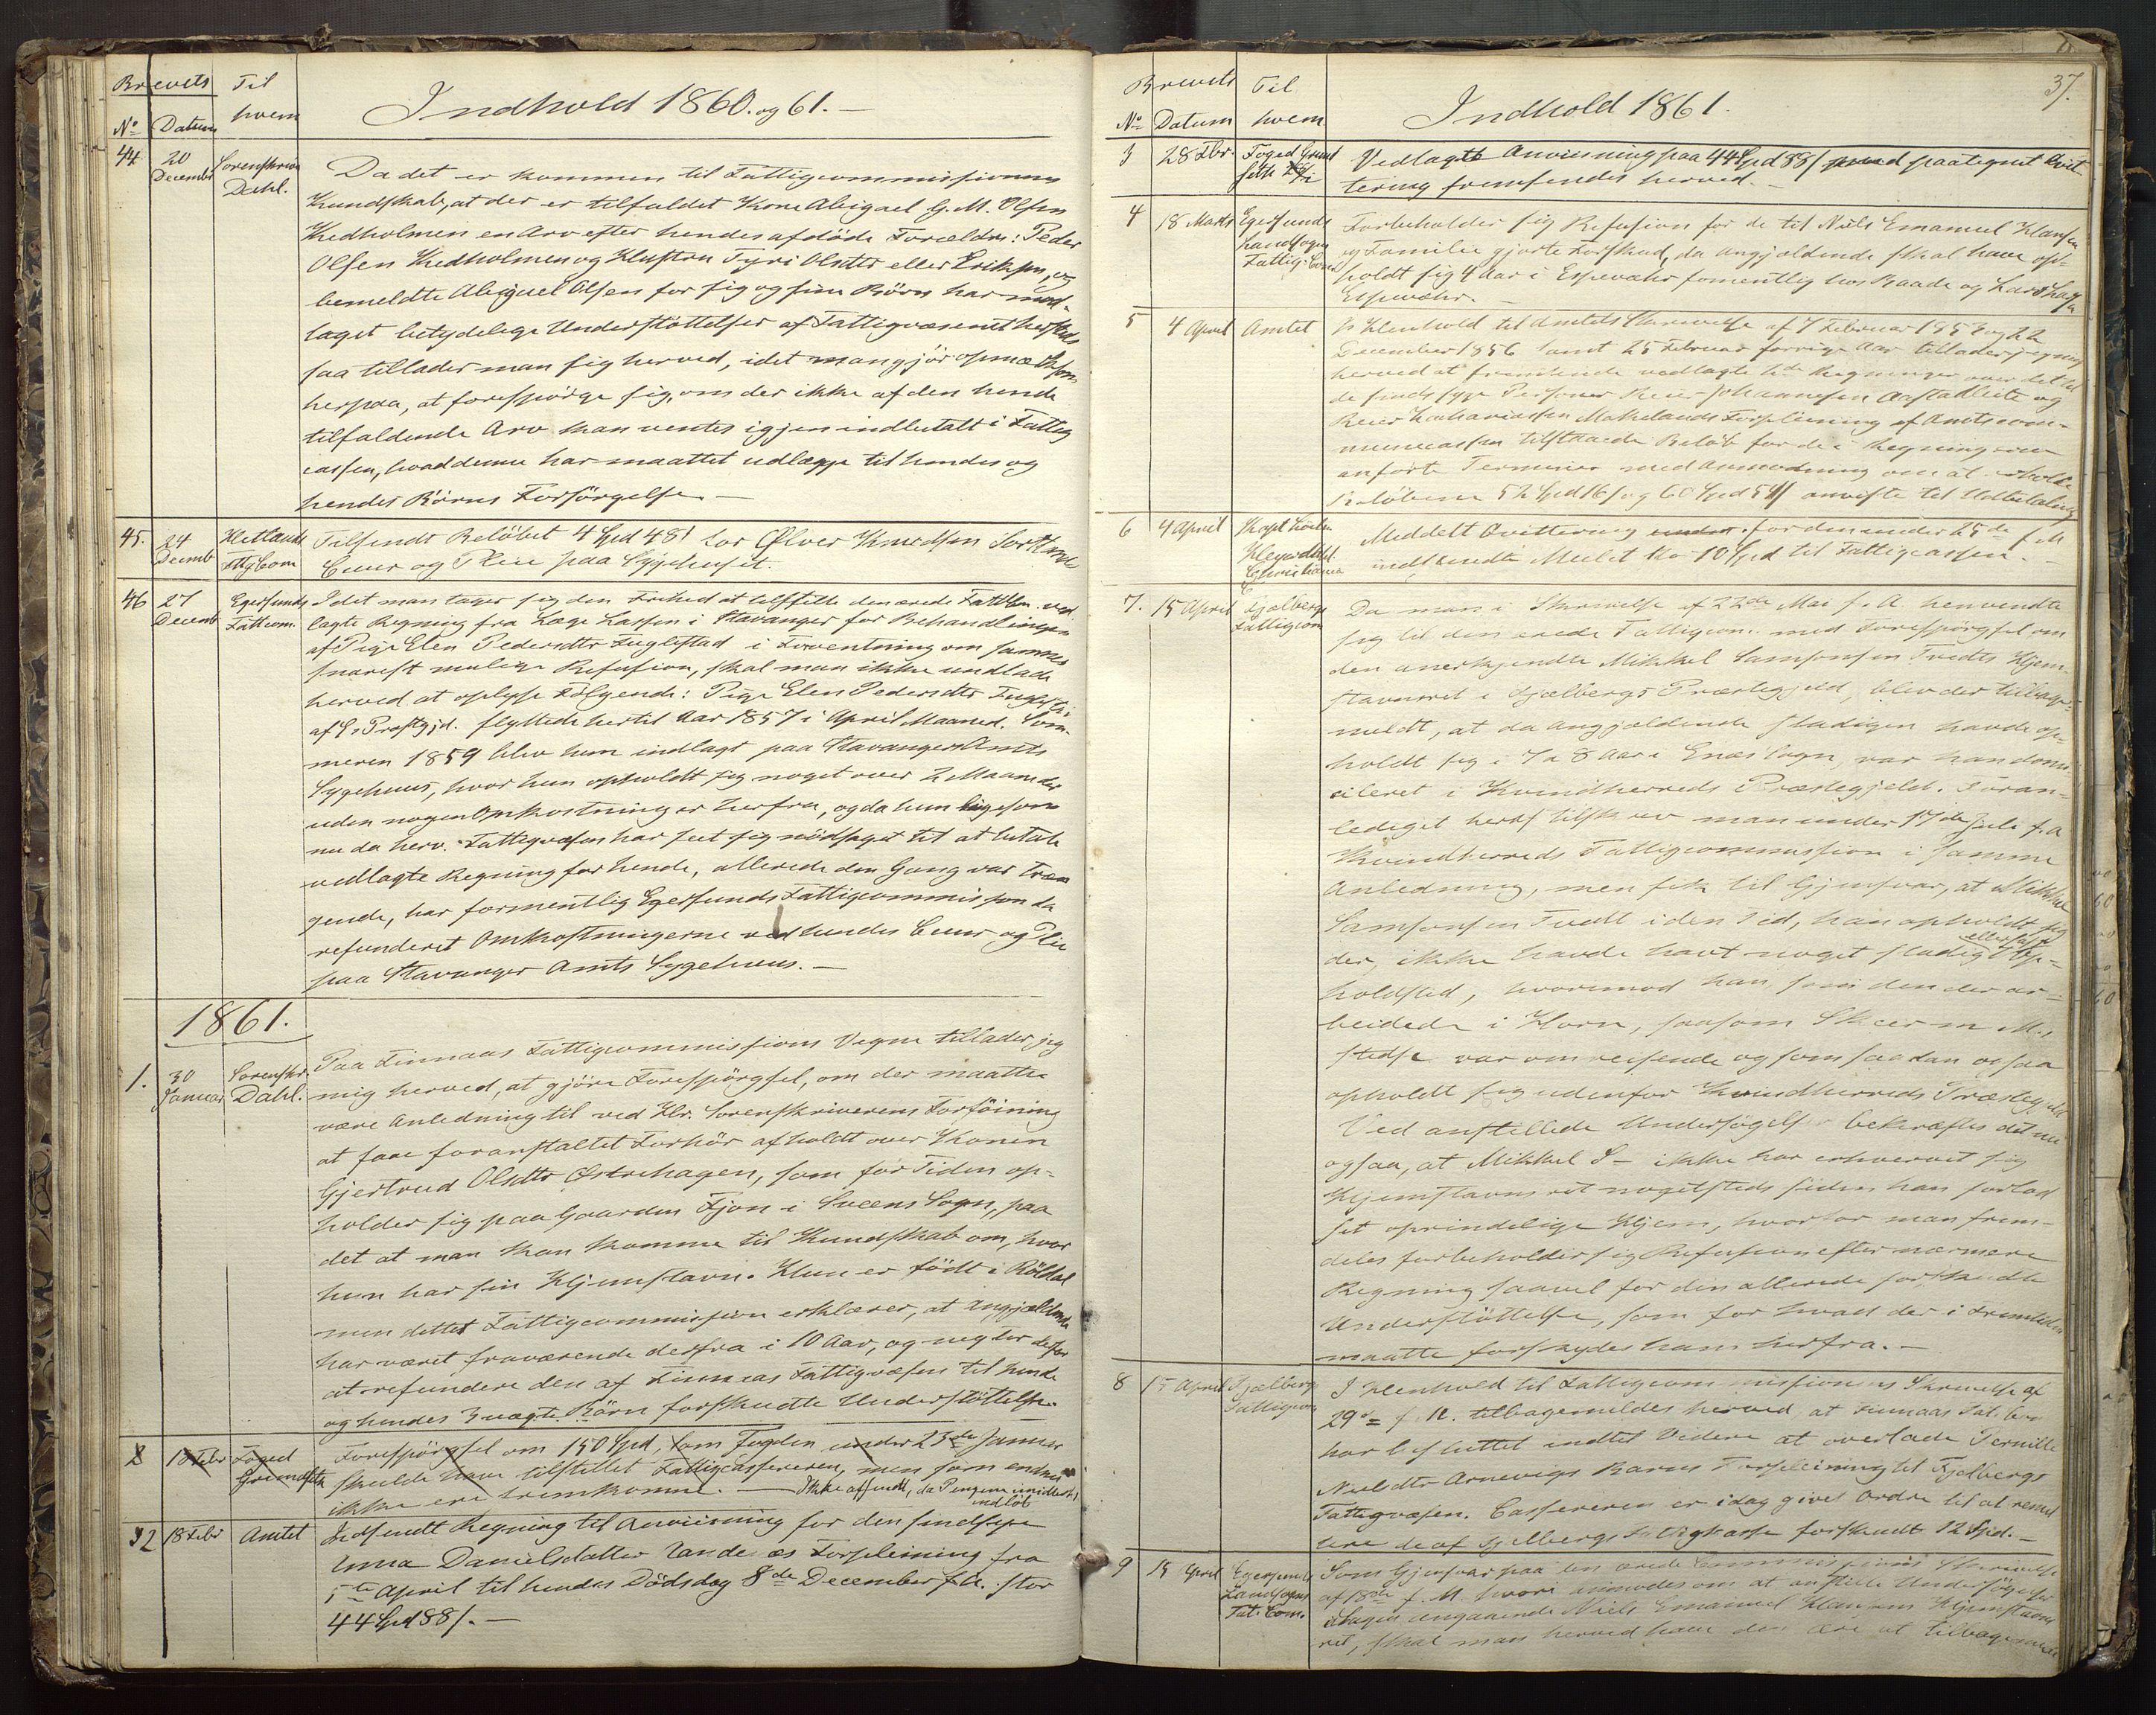 Brevets Til
No Datum hvem
Indhold 1860. og 61.-
44 20 Decembr Sorenskriver Dahl.
Da det er kommen til Fattigcommissionens
Kundskab, at der er tilfaldet Kone Abigael G. M. Olsen
Hedholmen en Arv efter hendes afdöde Forældre: Peder
Olsen Hedholmen og Hustru Tyri Olsdtr eller Eriksen, og
bemeldte Abigael Olsen for sig og sine Börn har mod-
taget betydelige Understöttelser af Fattigvæsenet hersteds
saa tillader man sig herved, idet man gjör opmærksom
herpaa, at forespörge sig, om der ikke af den hende
tilfaldende Arv kan ventes igjen indbetalt i Fattig
cassen, hvad denne har maattet udlægge til hendes og
hendes Börns Forsörgelse.-
45. 24 Decemb Hetlands Fttg Com
Tilsendt Belöbet 4 Spd 48 s for Ølver Knudsen
Cuur og Pleie paa Sygehuset.
46 27 Decemb Egersunds Fattcom.
Idet man tager sig den Frihed at tilstille den ærede Fattcom. ved-
lagte Regning fra Læge Larsen i Stavanger for Behandlingen
af Pige Elen Pedersdtr Fuglestad i Forventning om sammes
snarest mulige Refusion, skal man ikke undlade
herved at oplyse Fölgende: Pige Elen Pedersdtr Fuglestd
af E. Præstgjd. flyttede hertil Aar 1857 i April Maaned. Som-
meren 1859 blev hun indlagt paa Stavanger Amts
Sygehuus, hvor hun opholdt sig noget over 2 Maaneder
uden nogen Omkostninger herfra, og da hun ligesom
nu da herv. Fattigvæsen har seet sig nödsaget til at betale
vedlagte Regning for hende, allerede den Gang var træn
gende, har formentlig Egersunds Fattigcommission da
refunderet Omkostningerne ved hendes Cuur og Pleie
paa Stavanger Amts Sygehuus.-
1861.
1. 30 Januar Sorenskr. Dahl.
Paa Finnaas Fattigcommissions Vegne tillader jeg
mig herved, at gjöre Forespörgsel, om der maatte
være Anledning til ved Hr. Sorenskriverens Forföining
at faae foranstaltet Forhör afholdt over Konen
Gjertrud Olsdtr Østrehagen, som for Tiden op-
holder sig paa Gaarden Fjon i Sveens Sogn, paa
det at man kan komme til Kundskab om, hvor
hun har sin Hjemstavn. Hun er födt i Röldal
men dettes Fattigcommission erklærer, at Angjældende
har været fraværende derfra i 10 Aar, og negter derfor
at refundere den af Finnaas Fattigvæsen til hende
og hendes 3 uægte Börn forskudte Understöttelse.
2 18 Febr Foged Grimseth
Forespörgsel om 150 Spd, som Fogden under 23de Januar
skulde have tilstillet Fattigcassereren, men som endnu
ikke ere fremkomne. - Ikke afsendt, da Pengene imidlertid
indlöb
2 18 Febr Amtet
Indsendt Regning til Anviisning for den sindssyge
Anna Danielsdatter Landes Forpleining fra
1te April til hendes Dödsdag 8de December f.A. stor
44 Spd 88 s.-
37.
Brevets Til
No Datum hvem
Indhold 1861.
3 28 Fbr. Foged
Vedlagte Anviisning paa 44 Spd 88 s med paategnet Qvit
tering fremsendes herved.-
4 18 Marts Egersunds Landsogns Fattig. Com
Forbeholder sig Refusion for de til Niels Emanuel Hansen
og Familie gjorte Forskud, da angjældende skal have op-
holdt sig 4 Aar i Espevær fomentlig hos Baade og Lars
Espevær.-
5 4 April Amtet
I Henhold til Amtets Skrivelse af 7 Februar 1853 og 22
December 1856 samt 25 Februar forrige Aar tillader jeg mig
herved at fremsende vedlagte 2de Regninger over det til
de sindssyge Personer Reier Johannessen Aastadlein og
Reier Zachariassen Mækelands Forpleining af Amtscom-
munecassen tilstaaede Belöb for de i Regningerne
anförte Terminer med Anmodning om at erholde
Belöbene 52 Spd 16 s og 60 Spd 54 s anviste til Udbetaling
6 4 April Kapt
Christiania
Meddelt Qvittering for den under 25de f. M
indsendte Mulct stor 10 Spd til Fattigcassen-
7. 15 April Fjælbergs Fattigcom
Da man i Skrivelse af 22de Mai f. A henvendte
sig til den ærede Fattigcom. med Forespörgsel om
den anerkjendte Mikkel Samsonsen Tvedts Hjem-
stavnsret i Fjælbergs Præstegjeld, blev der tilbage-
meldt, at da angjældende stadigen havde op-
holdt sig i 7 a 8 Aar i Enæs Sogn, var han domi-
cileret i Kvindherreds Præstegjeld. Foran-
lediget heraf tilskrev man under 17de Juli f. A
Kvindherreds Fattigcommission i samme
Anledning, men fik til Gjensvar, at Mikkel
Samsonsen Tvedt i den Tid, han opholdt sig
der, ikke havde havt noget stadig eller fast Op-
holdssted, hvorimod han, som den der ar-
beidede i Horn, saasom Skeer m. M.,
stedse var omreisende og som saadan ogsaa
opholdt sig udenfor Kvindherreds Præstegjeld
Ved anstillede Undersögelser bekræftes det nu
ogsaa, at Mikkel S- ikke har erhvervet sig
Hjemstavnsret nogetsteds siden han forlod
sit oprindelige Hjem, hvorfor man frem-
deles forbeholder sig Refusion efter nærmere
Regning saavel for den allerede forskudte
Understöttelse, som for hvad der i Fremtiden
maatte forskydes ham herfra.-
8 15 April Fjælbergs Fattigcom
I Henhold til Fattigcommissionens Skrivelse af
29de f. M. tilbagemeldes herved at Finnaas Fat. Com
har besluttet indtil Videre at overlade Pernille
Nielsdtr Arnevigs Barns Forpleining til Fjælbergs
Fattigvæsen. Cassereren er idag givet Ordre til at remit
tere de af Fjælbergs Fattigkasse forskudte 12 Spd.-
9 15 April Egersunds Landsogns Fat. Com.
Som Gjensvar paa den ærede Commissions Skrivelse
af 18de f. M. hvori anmodes om at anstille Undersögelse
angaaende Niels Emanuel Hansens Hjemstavns
ret, skal man herved have den Ære at tilbagemelde